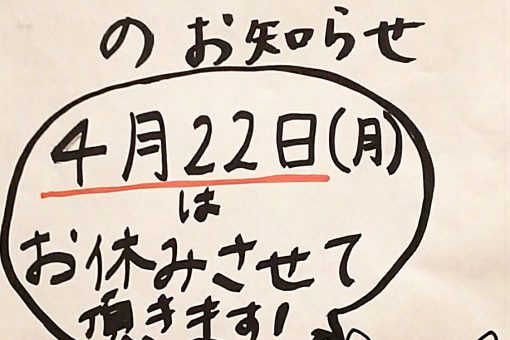 のお知らせ
4月22日(月)
は
お休みさせて
頂きます!